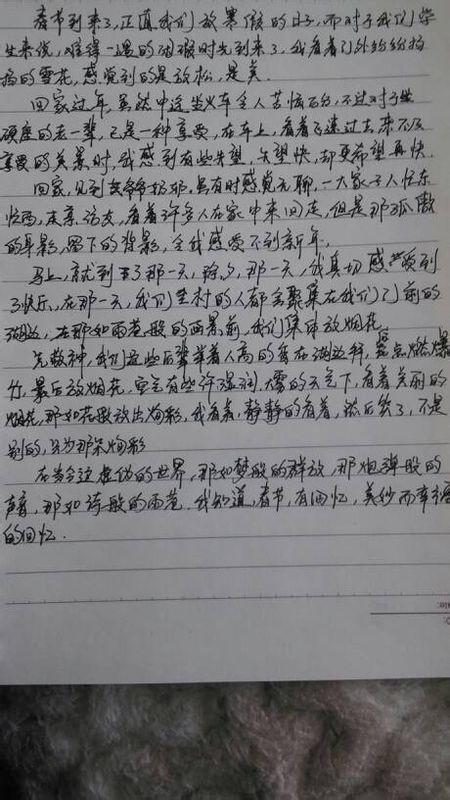 春节到来了,正值我们放寒假的日子,而对于我们学
生来说,难得一遇的闲暇时光到来了,我看着门外纷纷扬
扬的雪花,感觉到的是放松,是美.
回家过年,虽然中途坐火车令人苦恼百分,不过对于坐
硬座的老一辈,已是一种享受,在车上,看着飞速过去,来不及
享受的美景时,我感到有些失望,失望快,却更希望再快.
回家,见到爷爷奶奶,虽有时感觉无聊,一大家子人忙东
忙西,走亲访友,看着许多人在家中来回走,但是那孤傲
的身影,留下的背影,令我感受不到新年.
马上,就到了那一天,除夕,那一天,我真切感受到
了快乐,在那一天,我们全村的人都会聚集在我们门前的
湖边,在那如雨巷般的画景前,我们集中放烟花.
先敬神,我们这些后辈举着人高的香在湖边拜,点燃爆
竹,最后放烟花,空气有些许湿润,大雪的天气下,看着美丽的
烟花,那如花散放出绚彩,我看着,静静的看着,然后笑了,不是
别的,只为那朵绚彩
在当今这虚伪的世界,那如梦般的群放,那炮弹般的
声音,那如诗般的雨巷.我知道,春节,有回忆,美妙而幸福
的回忆.